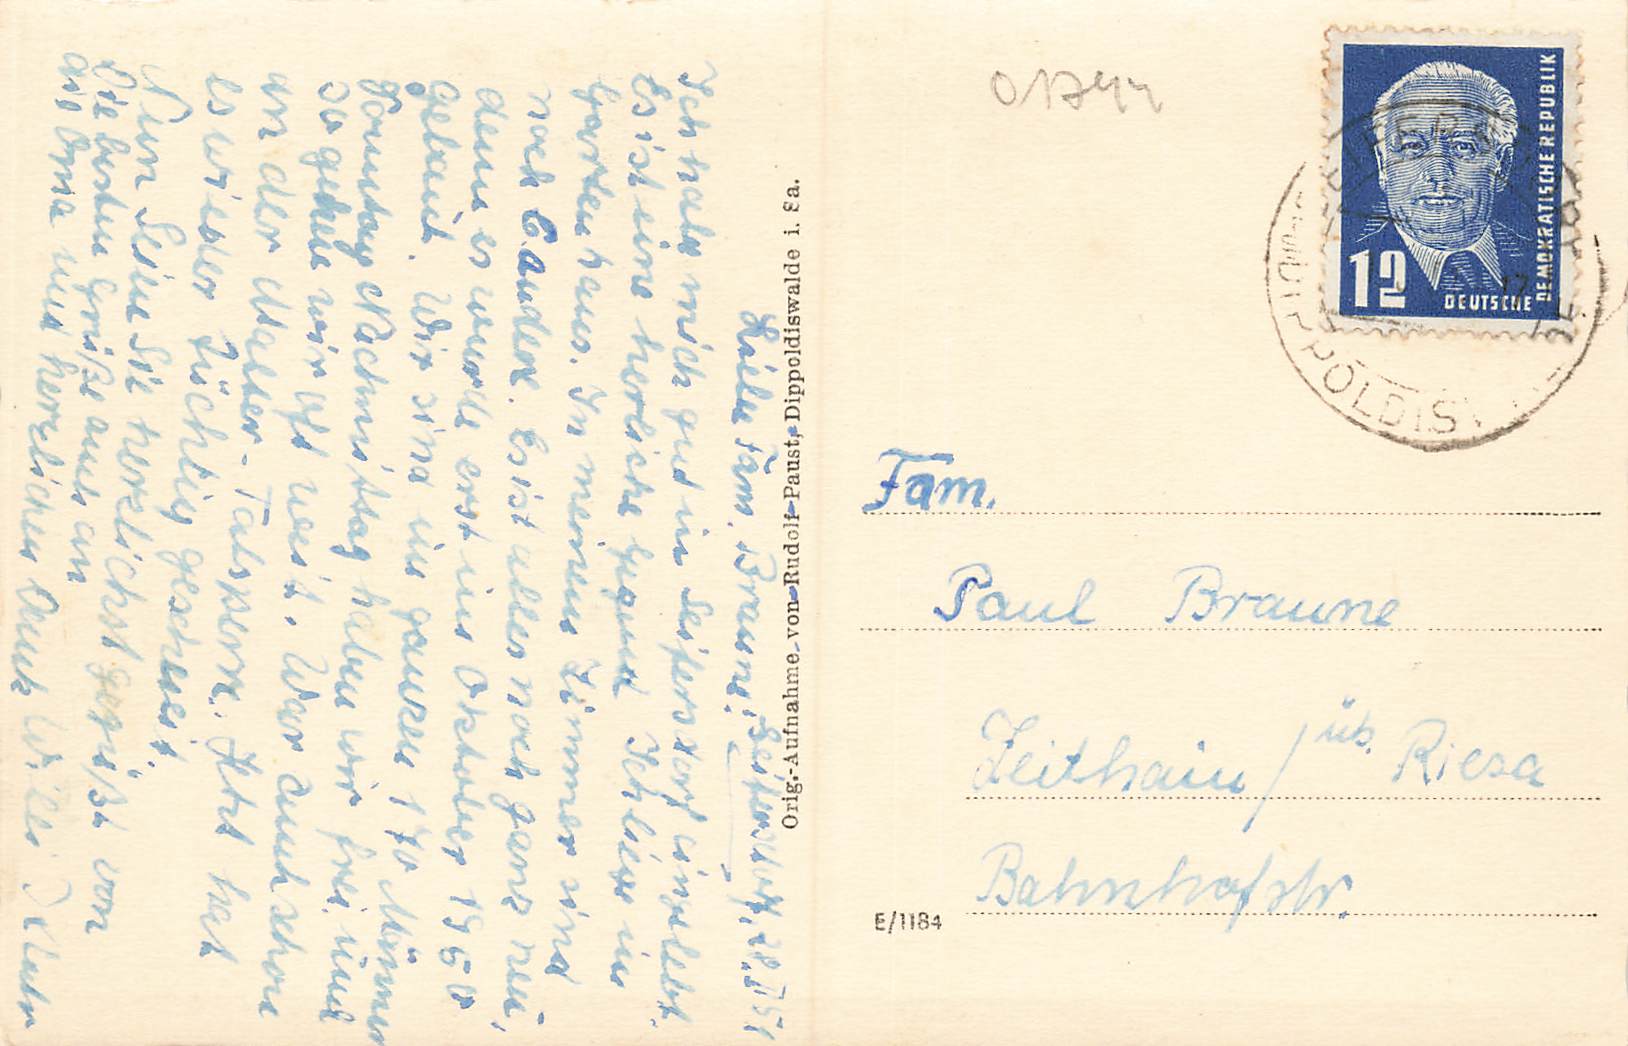 Seifersdorf, 28.II 51
Liebe Fam. Braune!
Ich habe mich gut in Seifersdorf eingelebt.
Es ist eine herliche Gegend Ich liege im
Gartenhaus. In meinem Zimmer sind
noch 6 andere. Es ist alles noch ganz neu,
denn es wurde erst im Oktober 1950
gebaut. Wir sind im ganzen 170 Männer
Sonntag Nachmittag haben wir frei und
so gehen wir oft weit. War auch schon
an der Malter-Talsperre. Jetzt hat
es wieder tüchtig geschneit.
Nun seien Sie herzlichst gegrüßt von
Die besten Grüße auch an
die Oma und herzlichen Dank Willi
Orig.-Aufnahme von Rudolf Paust, Dippoldiswalde i. Sa.
01744
12
DEUTSCHE
DEMOKRATISCHE REPUBLIK
DIPPOLDISW
Fam.
Paul Braune
Zeithain / üb. Riesa
Bahnhofstr.
E/1184